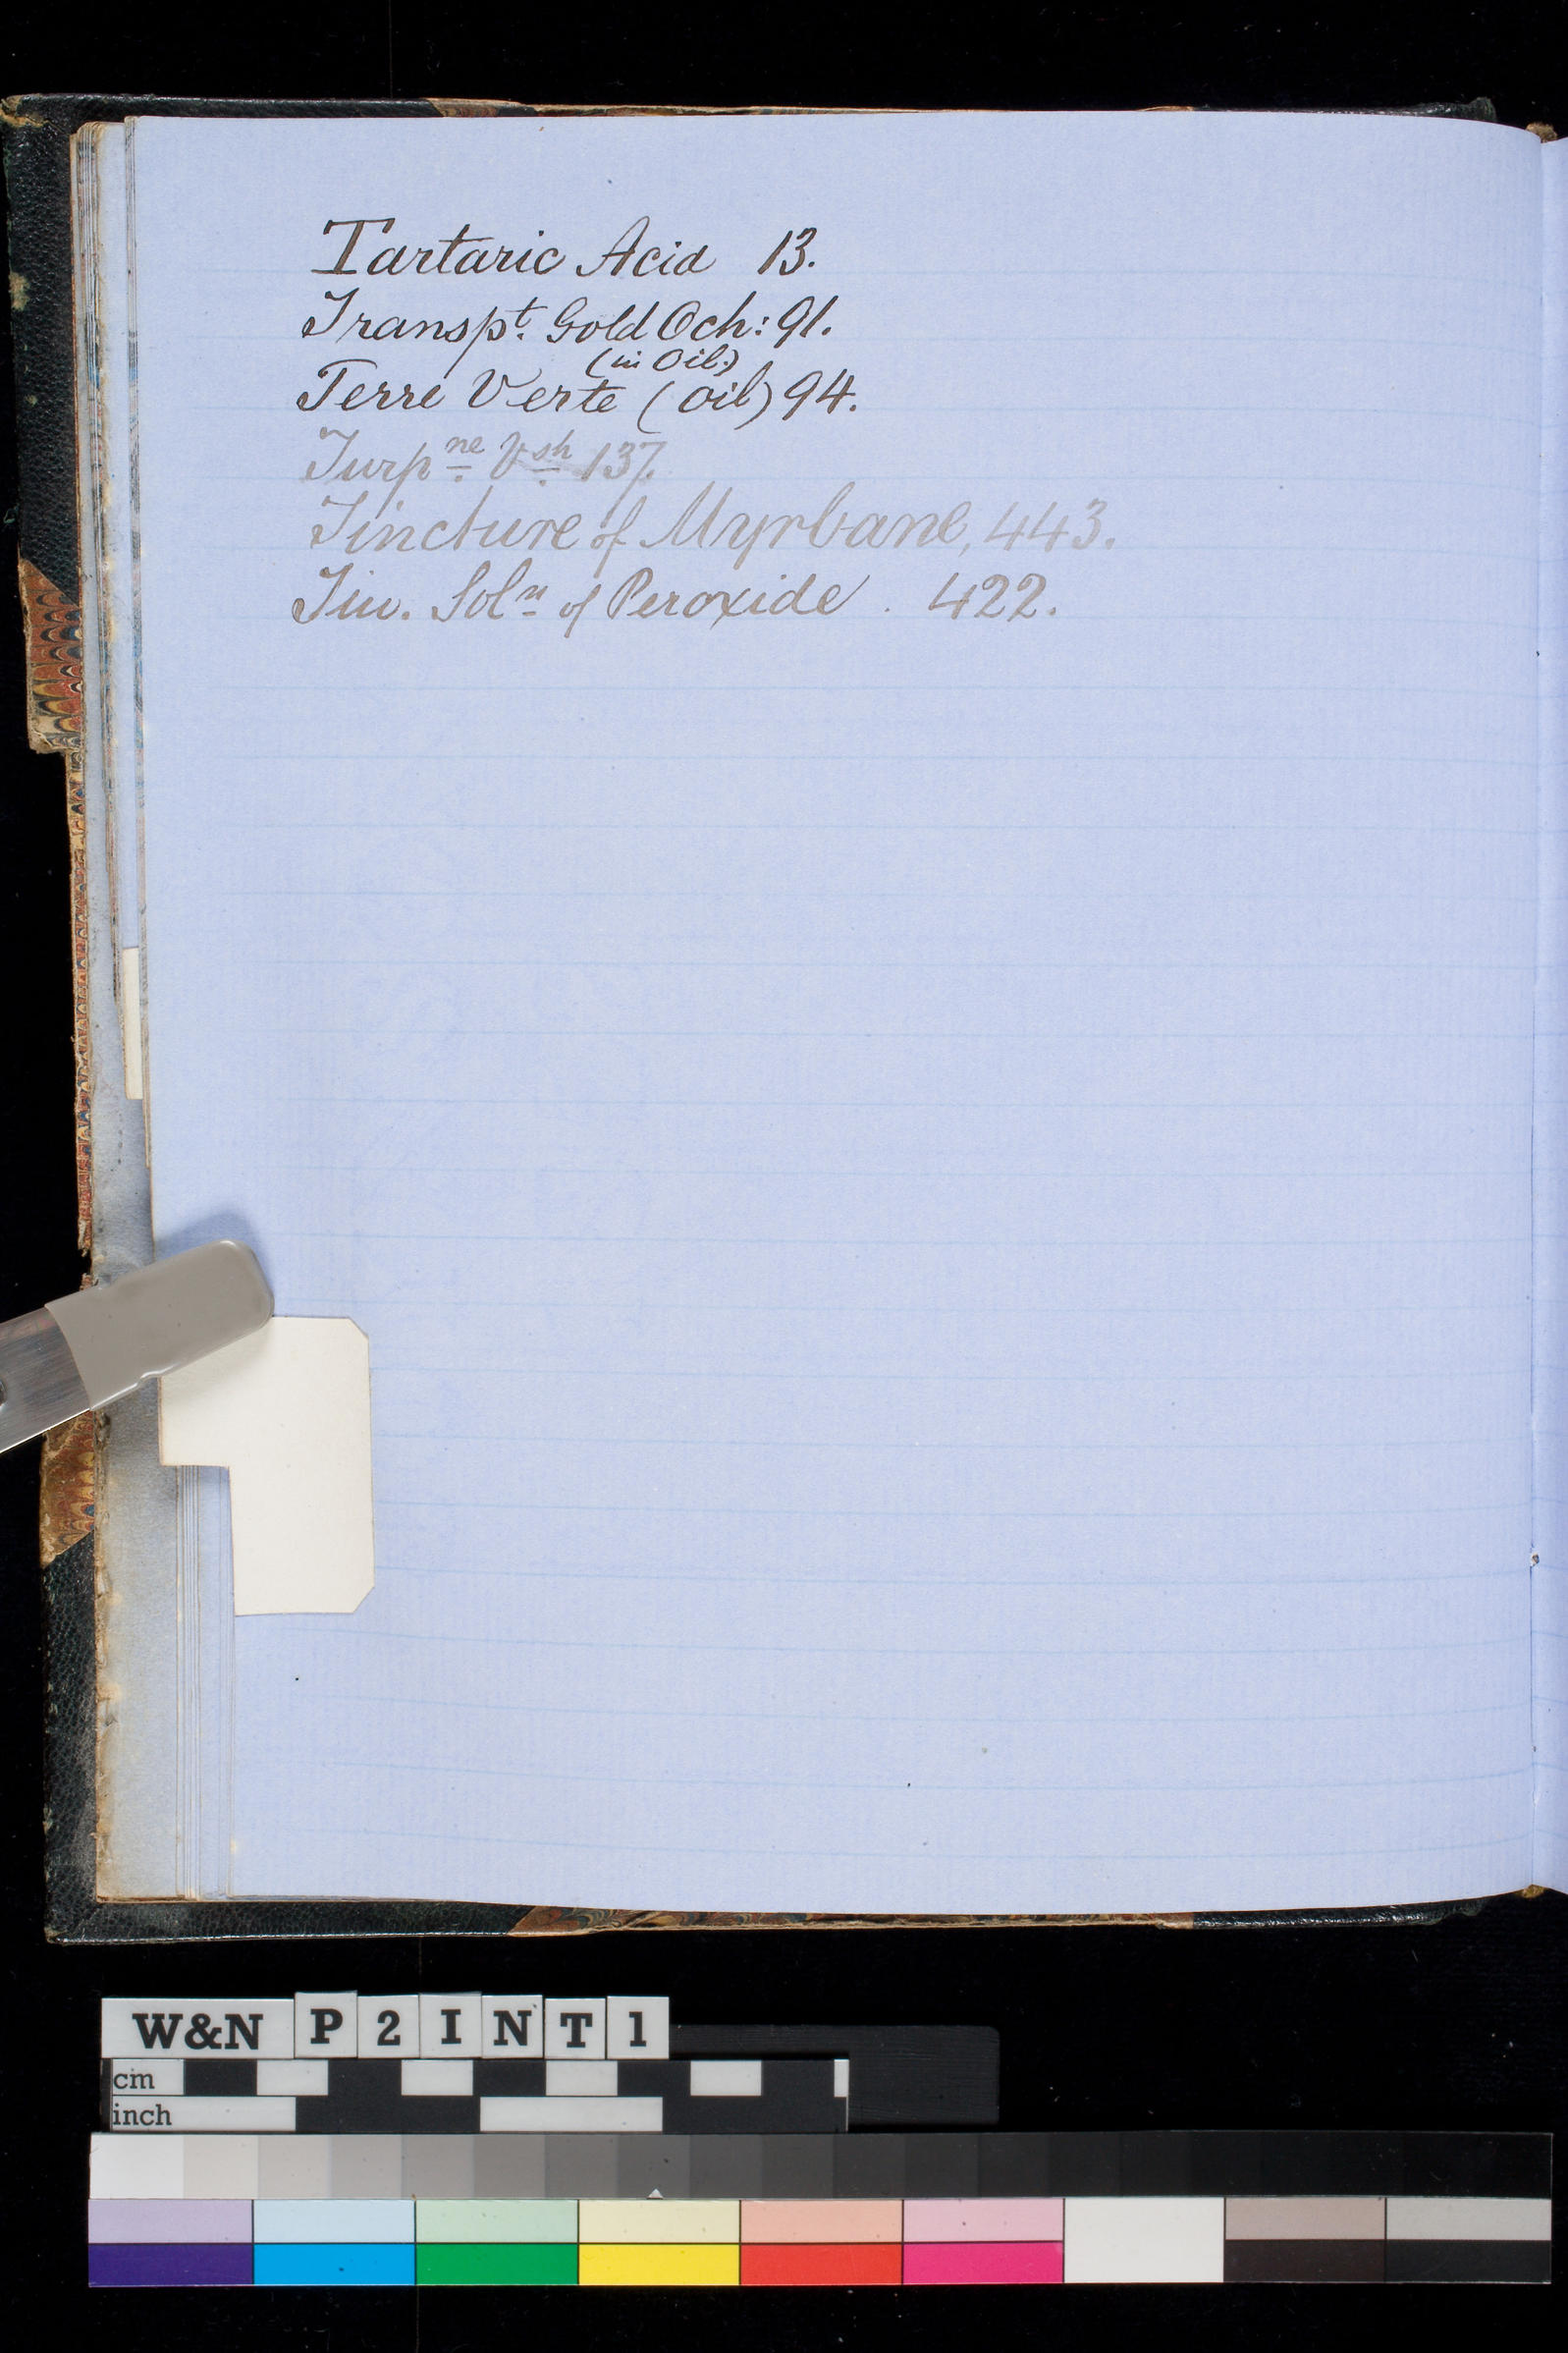 Tartaric Acid 13.
Transpt. Gold Och: 91.
(in Oil:)
Terre Verte (oil) 94.
Turpne. Vsh. 137.
Tincture of Myrbane, 443.
Tin. Soln of Peroxide . 422.
W&N P2INT1
cm
inch